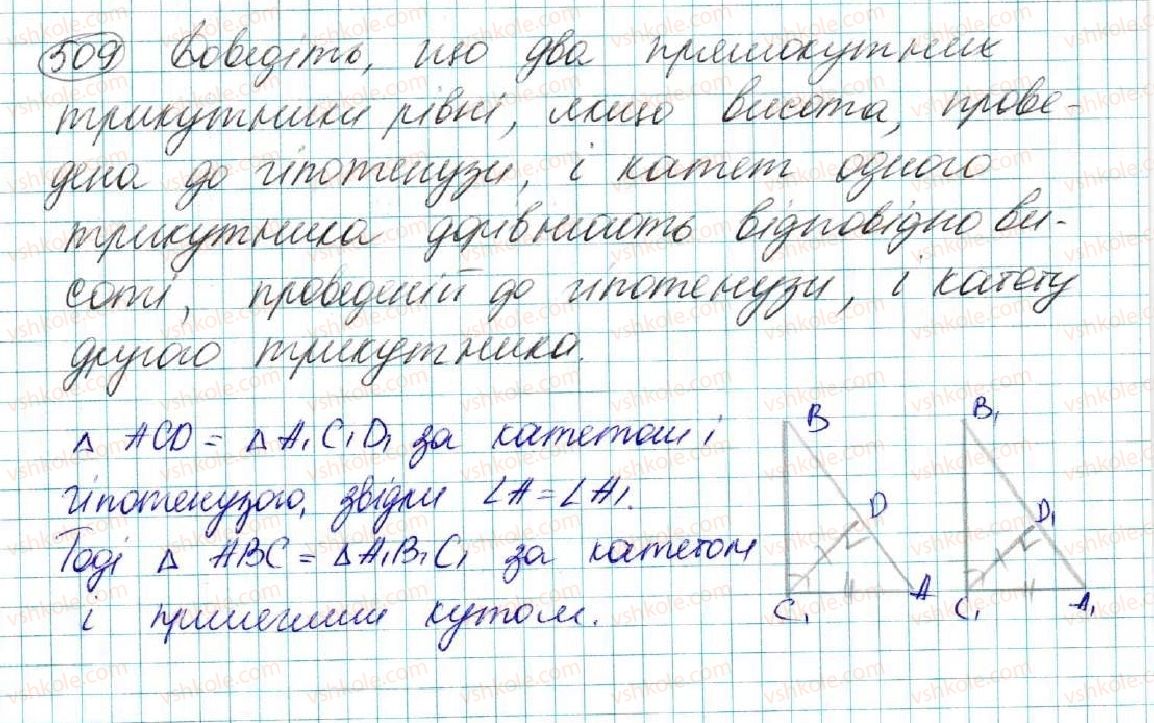 509 Доведіть, що два прямокутних
трикутники рівні, якщо висота, прове-
дена до гіпотенузи, і катет одного
трикутника дорівнюють відповідно ви-
соті, проведеній до гіпотенузи, і катету
другого трикутника.
△ ACD = △ A₁C₁D₁ за катетом і
гіпотенузою, звідки ∠A = ∠A₁.
Тоді △ ABC = △A₁B₁C₁ за катетом
і прилеглим кутом.
B B₁
D D₁
C₁ A C₁ A₁
vshkole.com